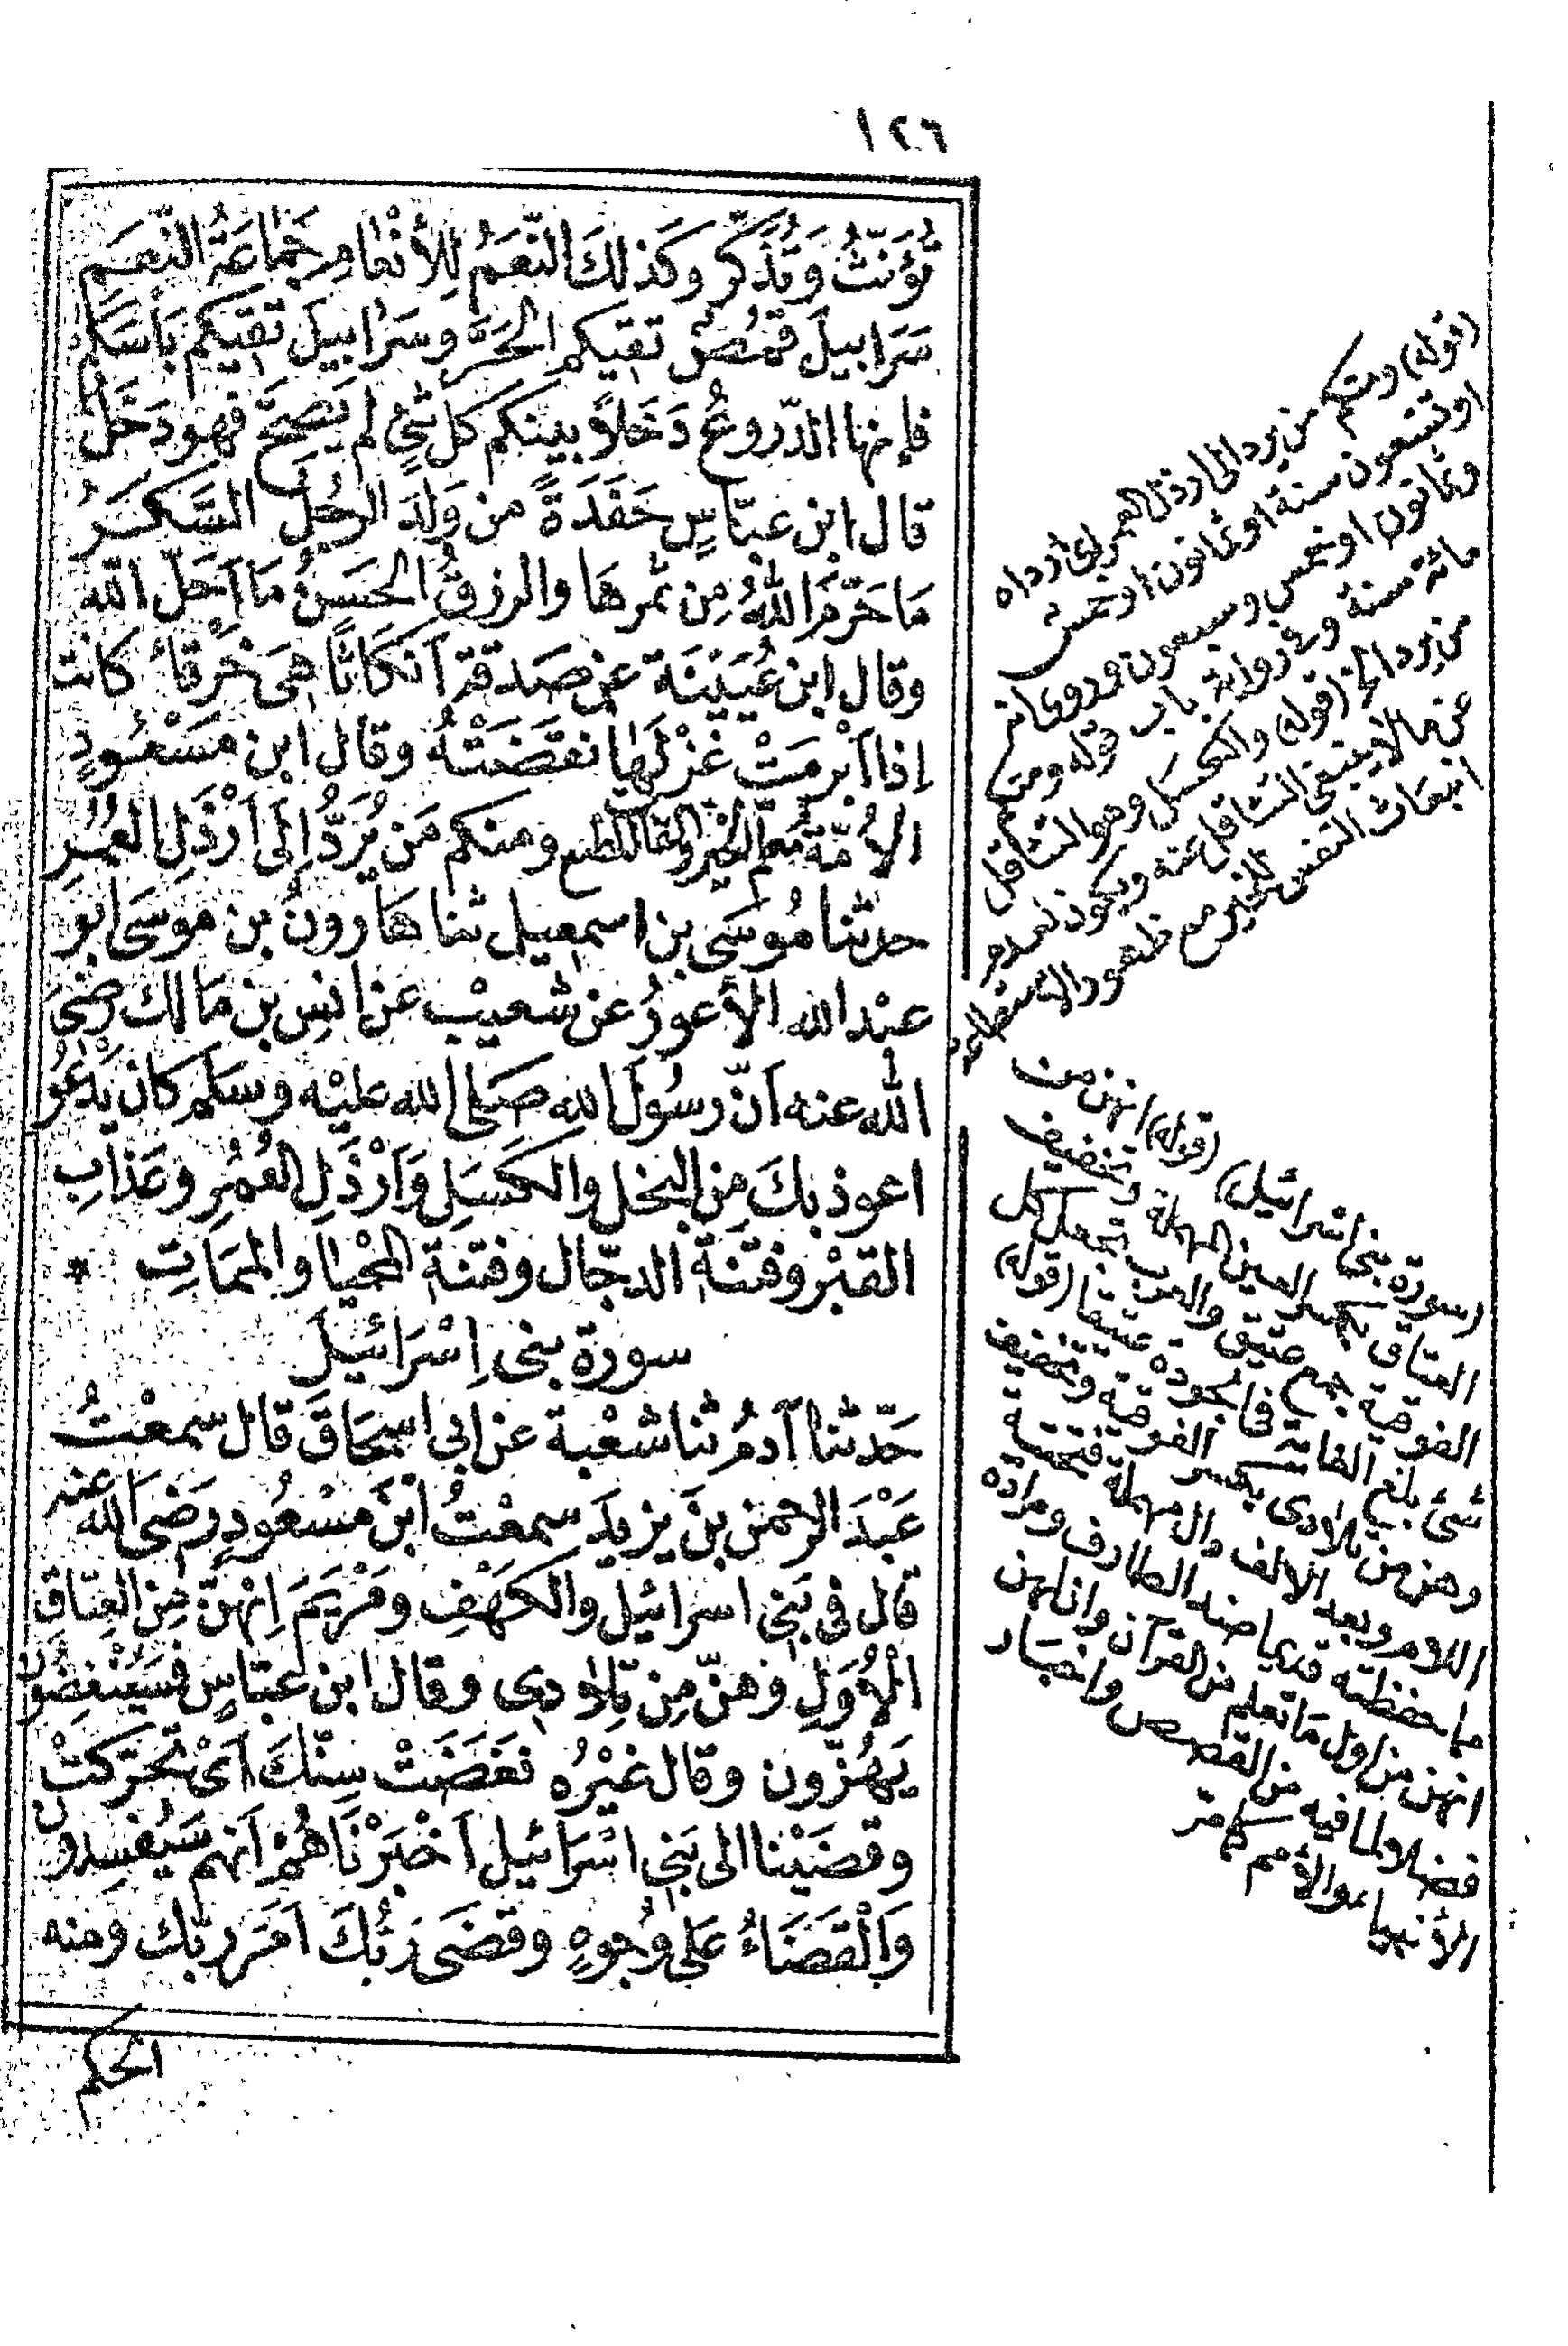 ١٢٦
تُؤَنَّثُ وَتُذَكَّر وكَذلكَ النَّعَمُ لِلأنْعامِ جَماعَةُ النَّعَمِ
سَرَابيلَ قُمُصٌ تقيكم الحَرَّ وسَرَابيلَ تقيكم بَأسَكم
فإنها الدّروعُ دَخَلاً بينكم كل شَيْءٍ لم يَصِحَّ فهو دَخَلٌ
قال ابن عبّاسٍ حَفَدَةً من وَلَدَ الرجُلِ السَّكَرُ
مَا حَرَّمَ اللهُ مِن ثمرهَا والرزقُ الحَسَنُ مَا أحَلّ الله
وقال ابن عُيَيْنَة عن صَدقة أنكَاثًا هِىَ خَرْقاءُ كانت
إذا أبْرمَتْ غَزْلَهَا نقَضَتْهُ وقال ابن مَسْعُودٍ
الأُمّة مُعلّم الخَيْر والقانت المطيع ومنكم مَن يُرَدُّ إلَى أرْذَلِ العُمُرِ
حدثنا مُوسَى بن اسمعيل ثنا هَارونُ بن موسَى ابو
عبْد الله الأعورُ عن شعيْب عن انسِ بن مَالك رضىَ
الله عنه أنّ رسُولَ الله صَلى الله عليْه وسَلم كان يَدعُو
اعوذ بكَ مِن البخل والكَسَلِ وَأرْذَلِ العُمُرِ وعَذابِ
القبْر وفتنَة الدجّال وفتنة المَحْيا والممَاتِ *
سورة بنى إسْرَائيلَ
حَدّثنا آدمُ ثنا شعْبة عن ابى اسحَاقَ قال سمعْتُ
عَبْدَ الرحمن بنَ يزيدَ سمعْتُ ابْنَ مسْعُودٍ رَضىَ الله عنه
قال فى بَنِى اسرائيل والكَهْفِ ومَرْيَمَ إنهُنّ مِن العِتاقِ
الأُوَلِ وهُنّ مِن تِلاَدى وقال ابن عبّاسٍ فسَيُنغِضُونَ
يَهُزّون وقال غيْرُه نغَضَتْ سِنّكَ أىْ تحَرّكَتْ
وقضَيْنا الى بَنِى اسْرَائيل أخْبَرْنَاهُمْ أنهم سَيُفسِدونَ
وَالْقَضَاءُ عَلى وُجوهٍ وقضَى رَبُّكَ أمَرَ ربّك ومنه
الحكم
(قوله) ومنكم من يرد الى ارذل العمر اى اردأه
او تسعون سنة او ثمانون او خمس
وثمانون او خمس وسبعون وروى انه
مائة سنة وفى رواية باب قوله ومنكم
من يرد الخ (قوله) والكسل وهو التثاقل
عن مالا ينبغى التثاقل عنه ويكون لعدم
انبعاث النفس للخير مع ظهور الاستطاعة
(سورة بنى اسرائيل) (قوله) انهن من
العتاق بكسر العين المهملة وتخفيف
الفوقية جمع عتيق والعرب تجعل كل
شئ بلغ الغاية فى الجودة عتيقا (قوله)
وهن من تلادى بكسر الفوقية وتخفيف
اللام وبعد الالف دال مهملة فتحتية
ما حفظته قديما ضد الطارف ومراده
انهن من اول ما تعلم من القرآن وان لهن
فضلا ولما فيه من القصص واخبار
الأنبياء والأمم كما مر